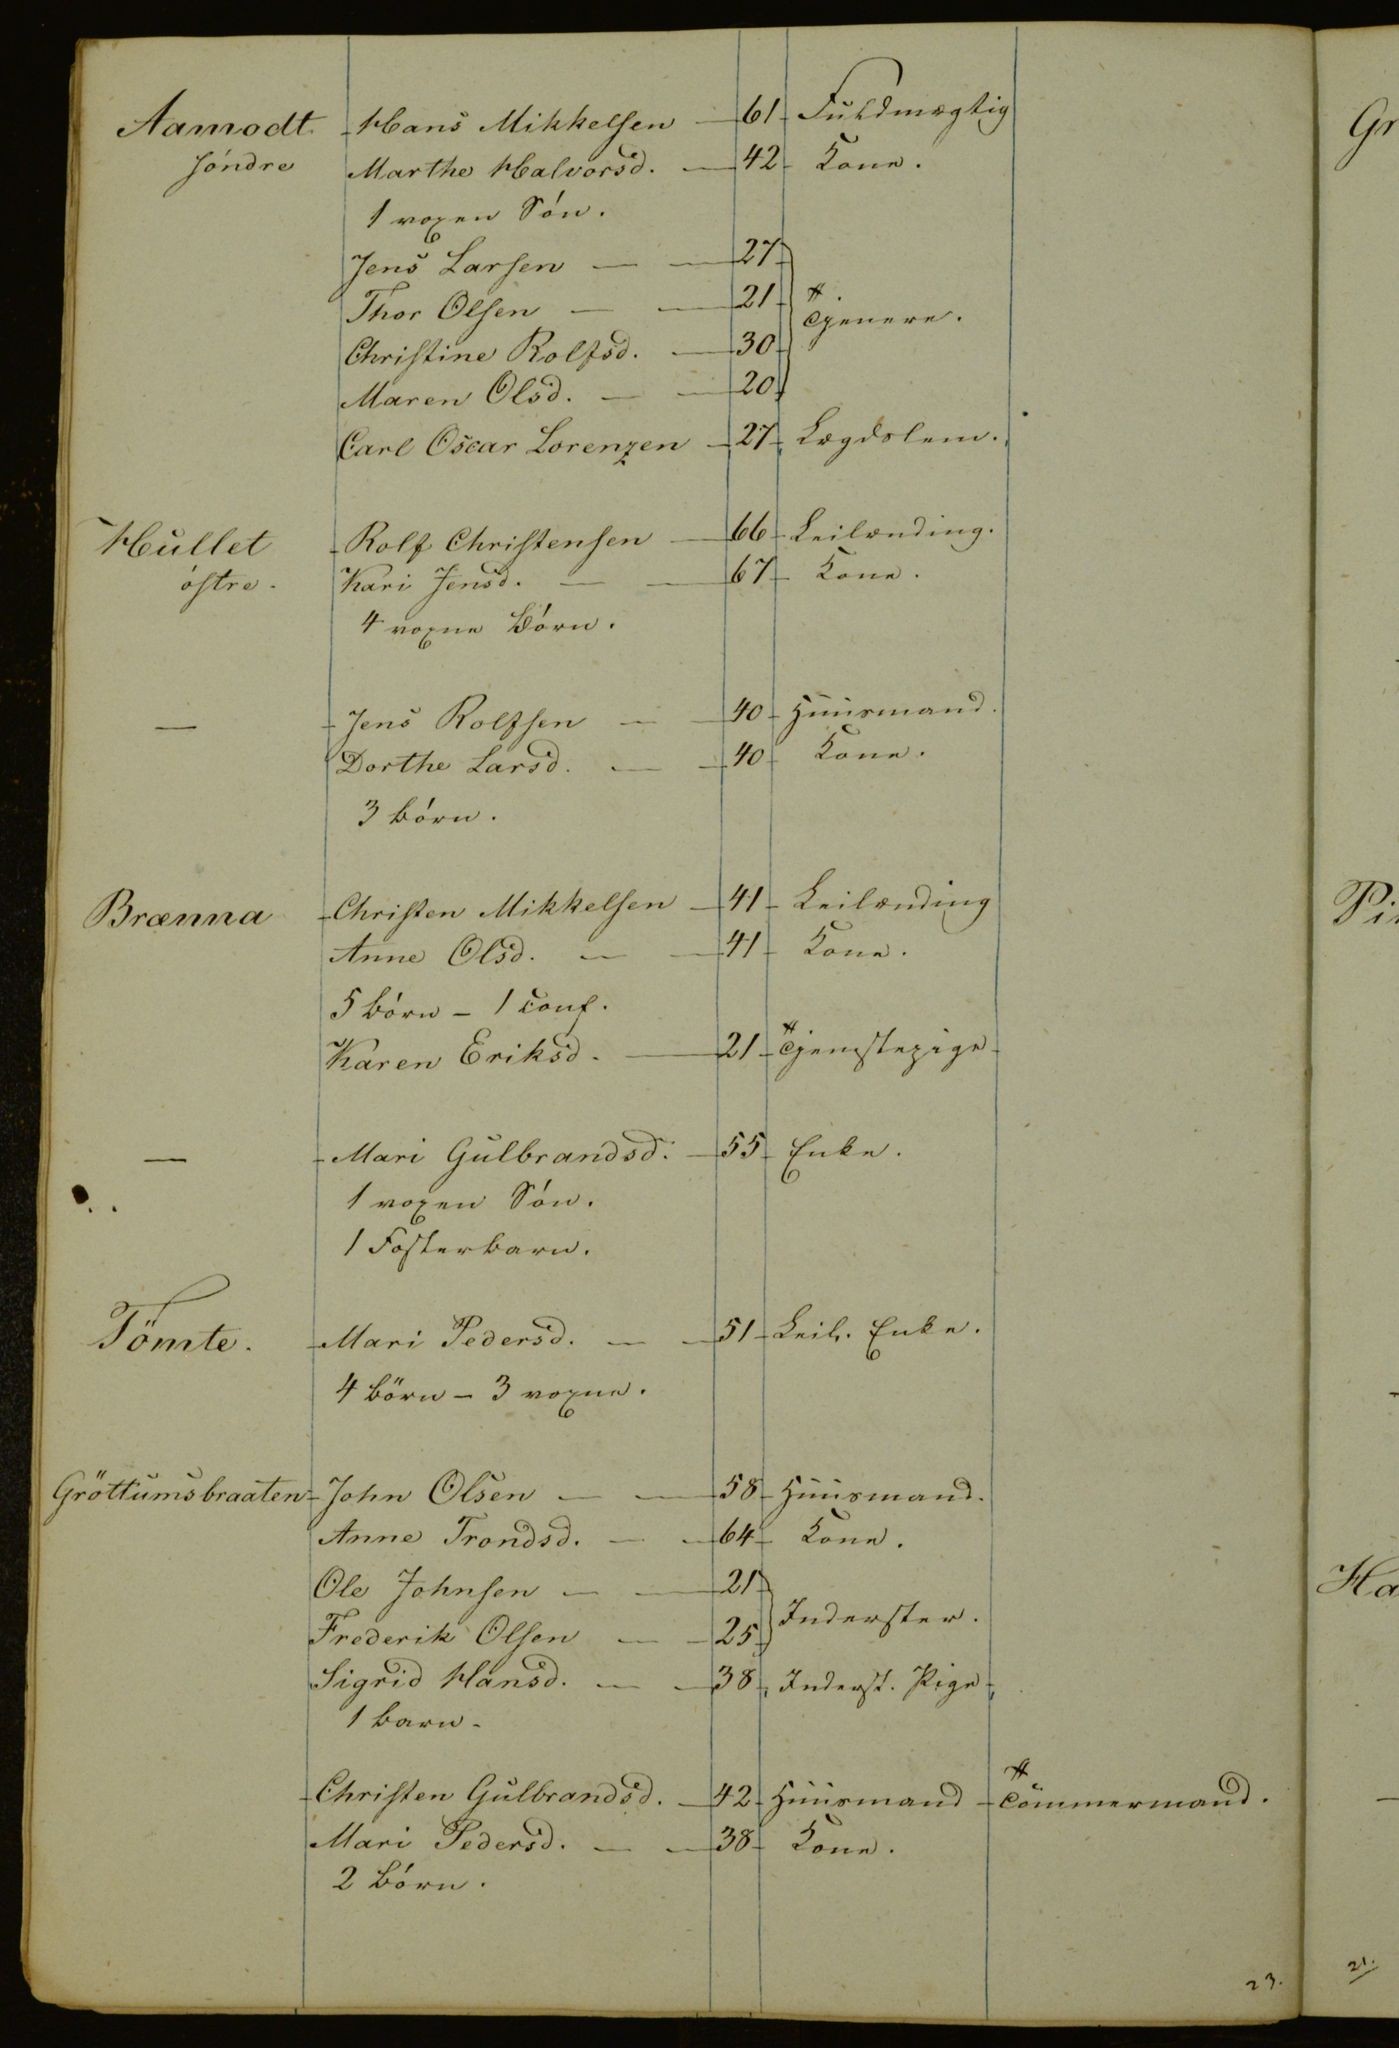 Aamodt - Hans Mikkelsen — 61 - Fuldmægtig
söndre Marthe Halvorsd. — 42 - Kone.
1 voxen Sön.
Jens Larsen — — 27
Thor Olsen — — 21
Tjenere.
Christine Rolfsd. — 30
Maren Olsd. — — 20
Carl Oscar Lorenzen - 27 - Lægdslem.
Hullet - Rolf Christensen — 66 - Leilænding.
östre. Kari Jensd. — — 67 - Kone.
4 voxne Börn.
— - Jens Rolfsen — — 40 - Huusmand.
Dorthe Larsd. — — 40 - Kone.
3 börn.
Brænna - Christen Mikkelsen — 41 - Leilænding
Anne Olsd. — — 41 - Kone.
5 börn - 1 conf.
Karen Eriksd. — 21 - Tjenstepige -
— - Mari Gulbrandsd. — 55 - Enke.
1 voxen Sön.
1 Fosterbarn.
Tömte. - Mari Pedersd. — — 51 - Leil. Enke.
4 börn - 3 voxne.
Gröttumsbraaten - John Olsen — — 58 - Huusmand.
Anne Trondsd. — — 64 - Kone.
Ole Johnsen — — 21
Frederik Olsen — — 25
Inderster.
Sigrid Hansd. — — 38 - Inderst. Pige -
1 barn -
- Christen Gulbrandsd. — 42 - Huusmand - Tömmermand.
Mari Pedersd. — — 38 - Kone.
2 börn.
23.
Gr
Pi
Ha
21.